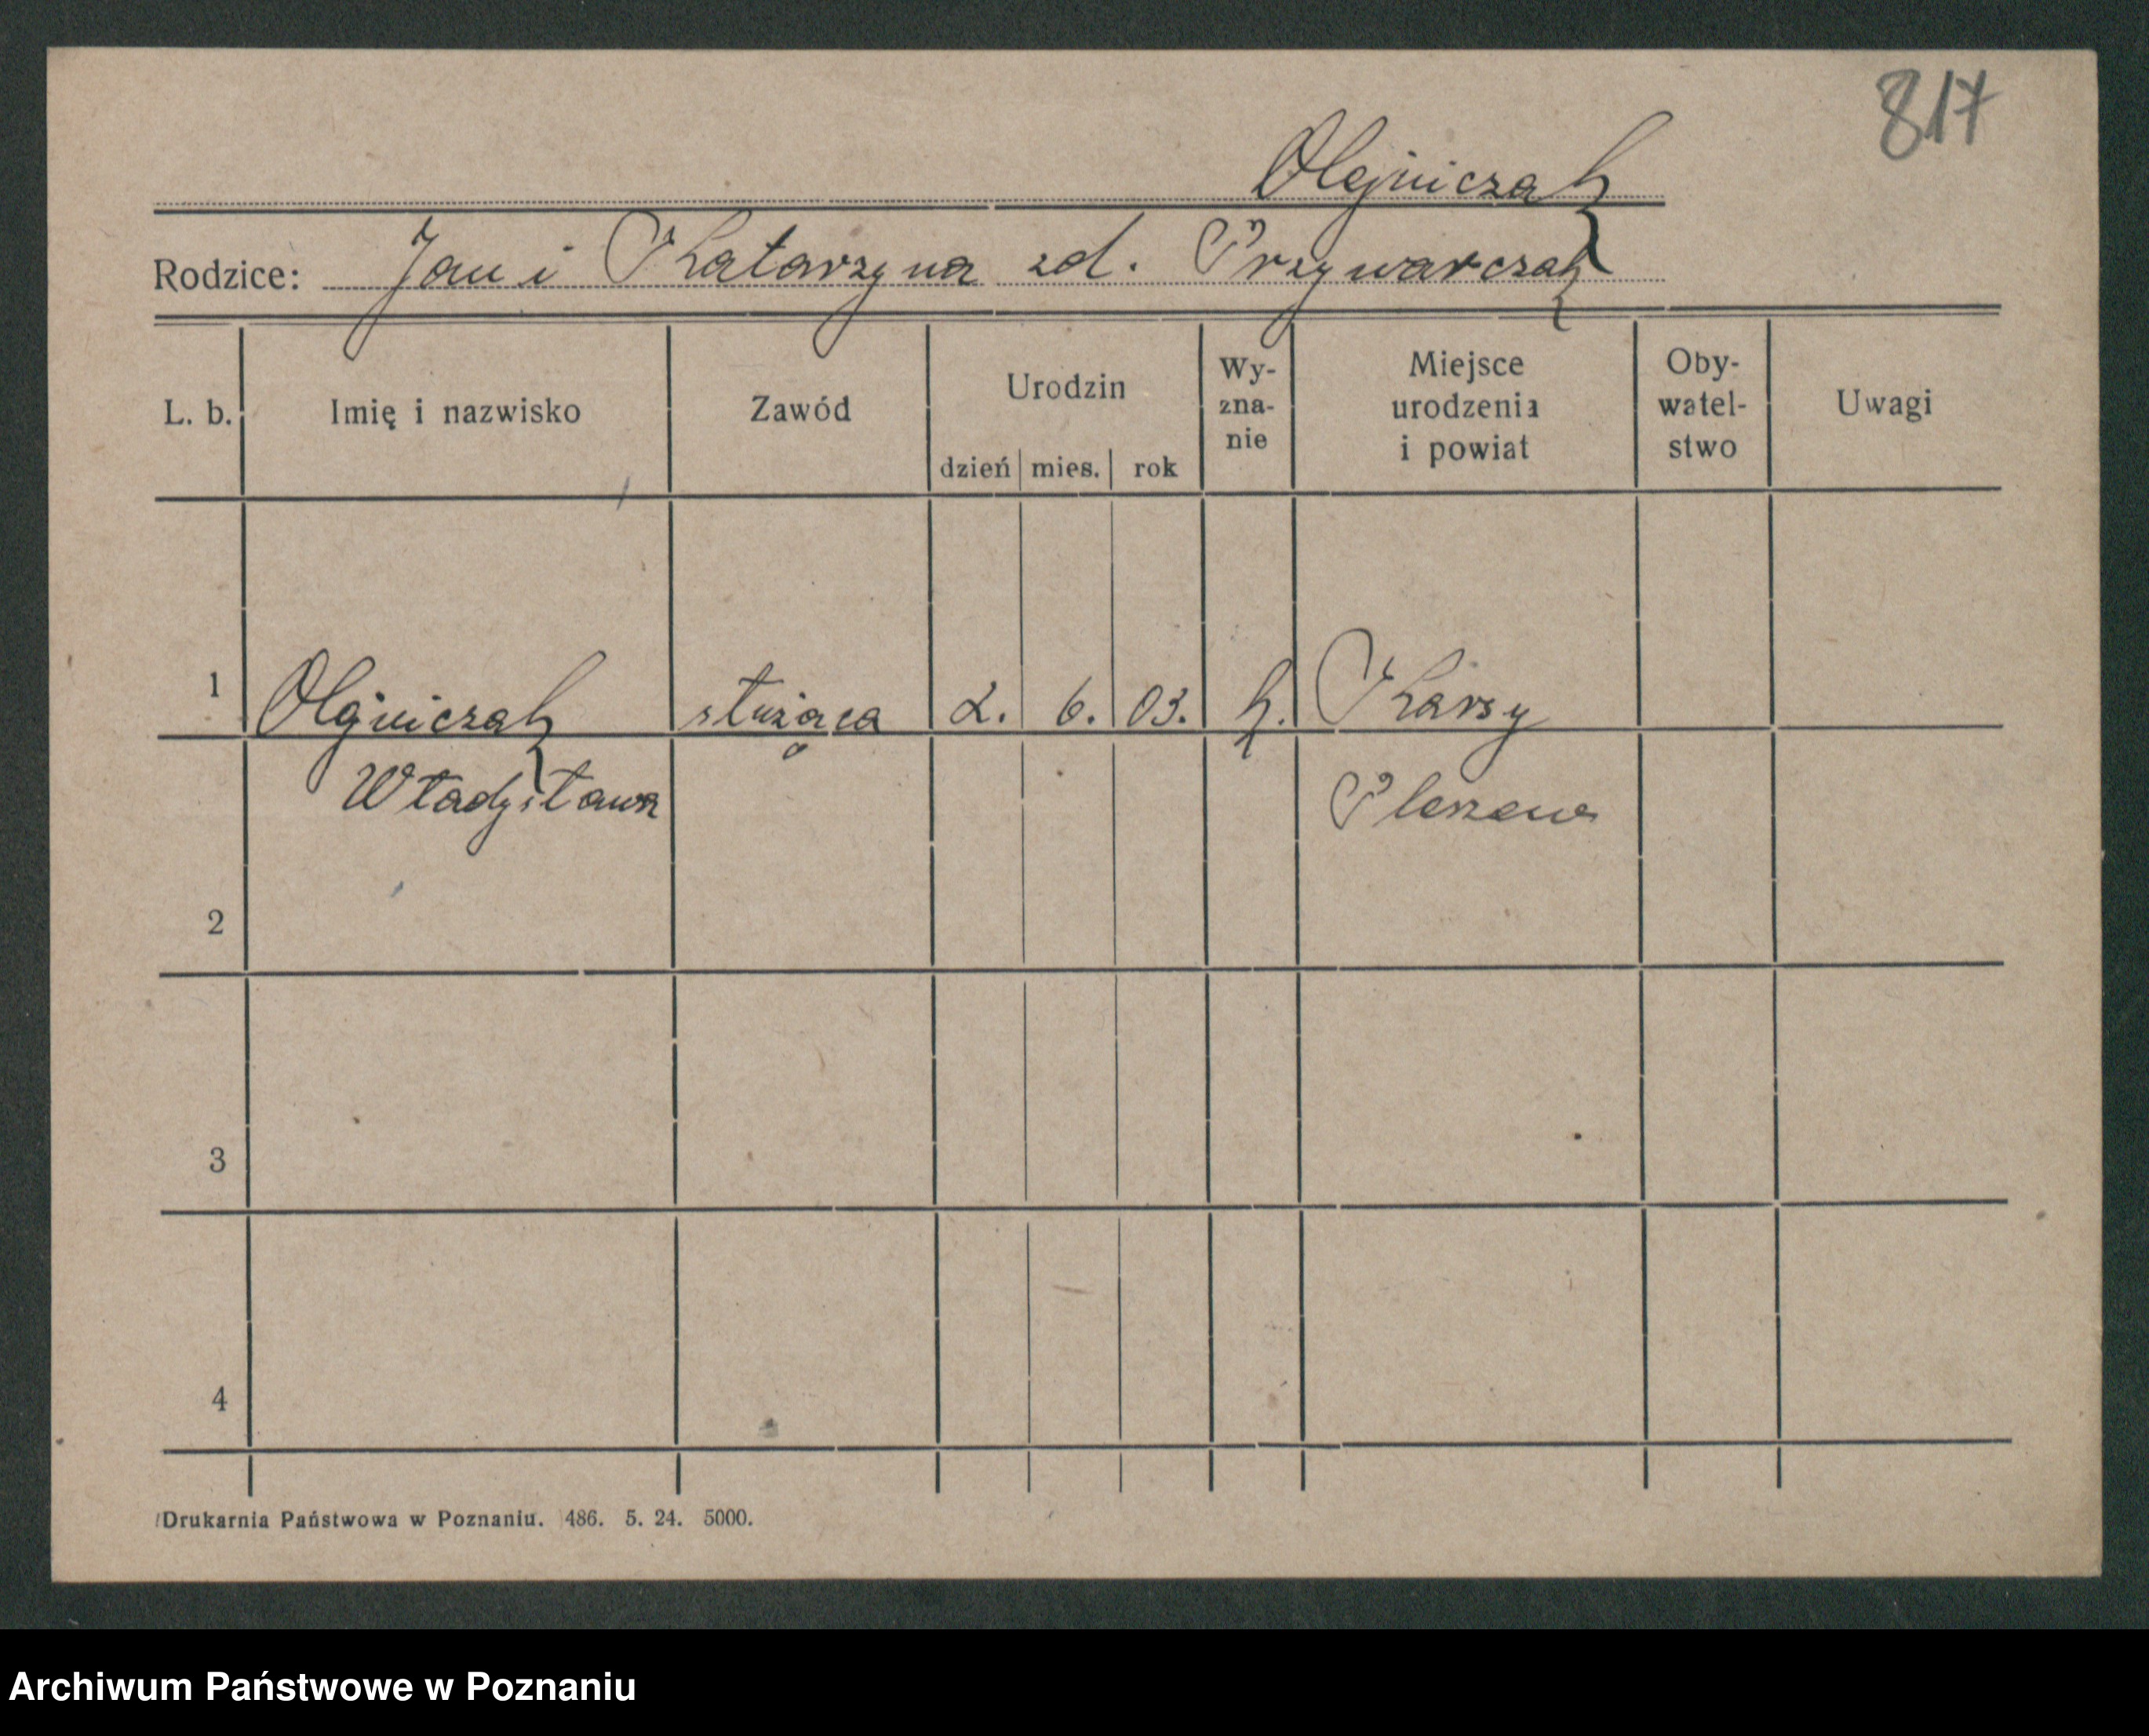 817
Olejniczak
Rodzice: Jan i Katarzyna zd. Przywarczak
L. b. Imię i nazwisko Zawód Urodzin dzień mies. rok Wy-zna-nie Miejsce urodzenia i powiat Oby-watel-stwo Uwagi
1 Olejniczak służąca 2. 6. 03. k. Karsy
Władysława Pleszew
2
3
4
Drukarnia Państwowa w Poznaniu. 486. 5. 24. 5000.
Archiwum Państwowe w Poznaniu